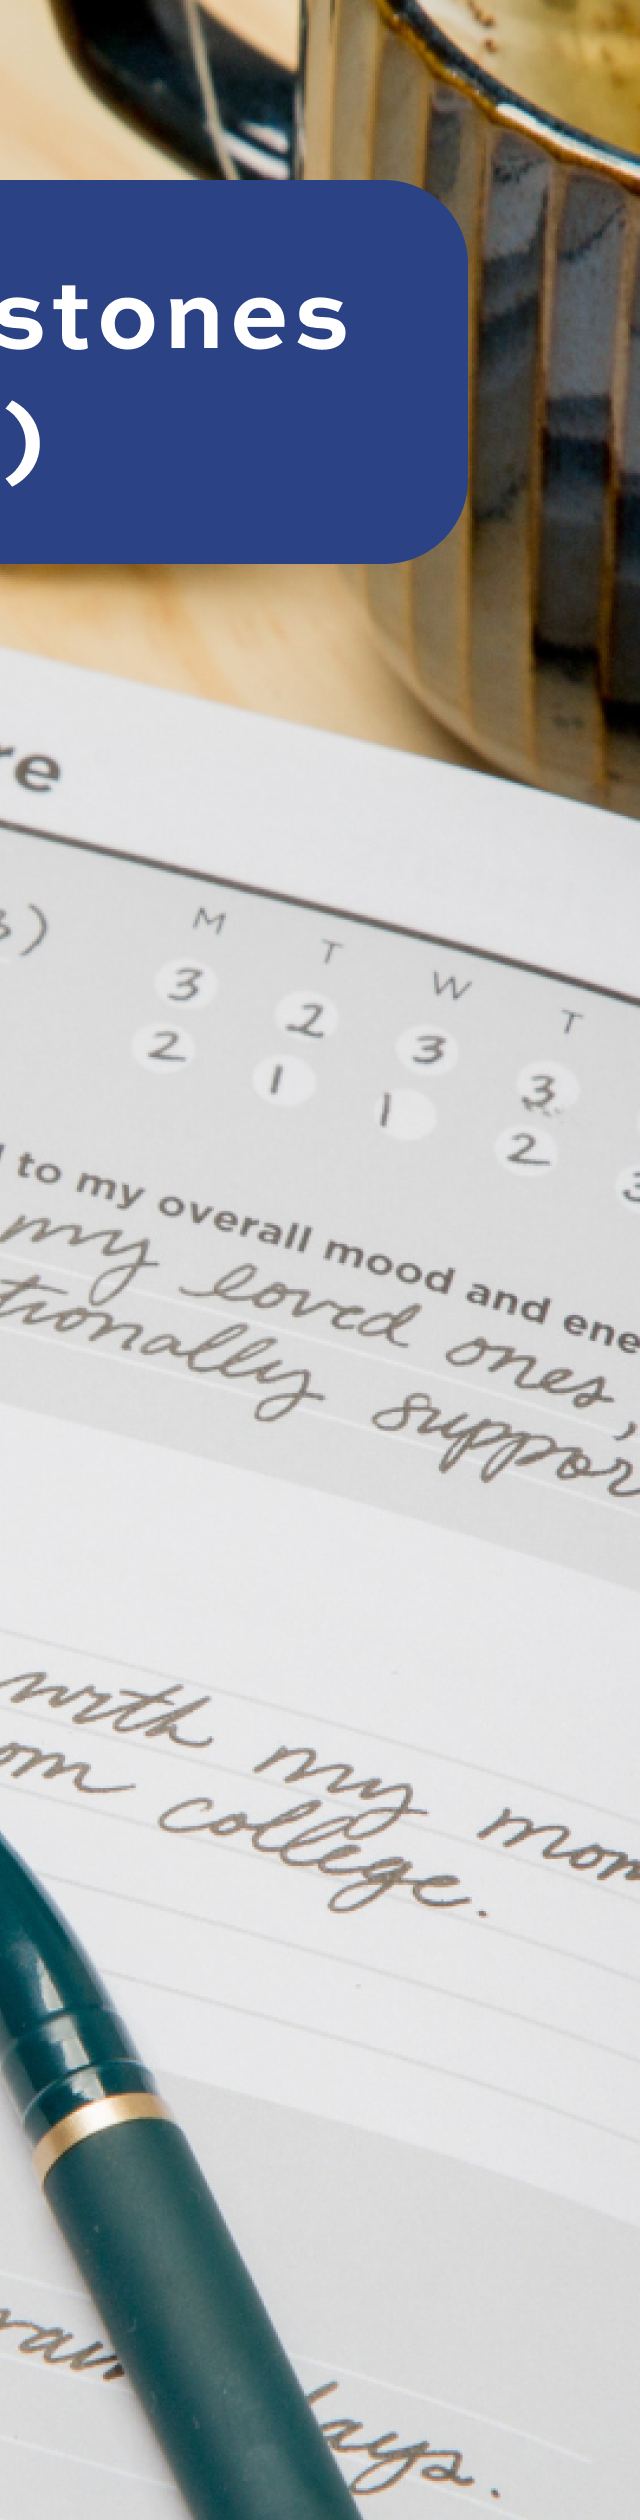 stones
)
re
3)
M T W T
3 2 3 3
2 1 1 2 3
l to my overall mood and ene
my loved ones,
tionally suppor
with my mom
om college.
days.